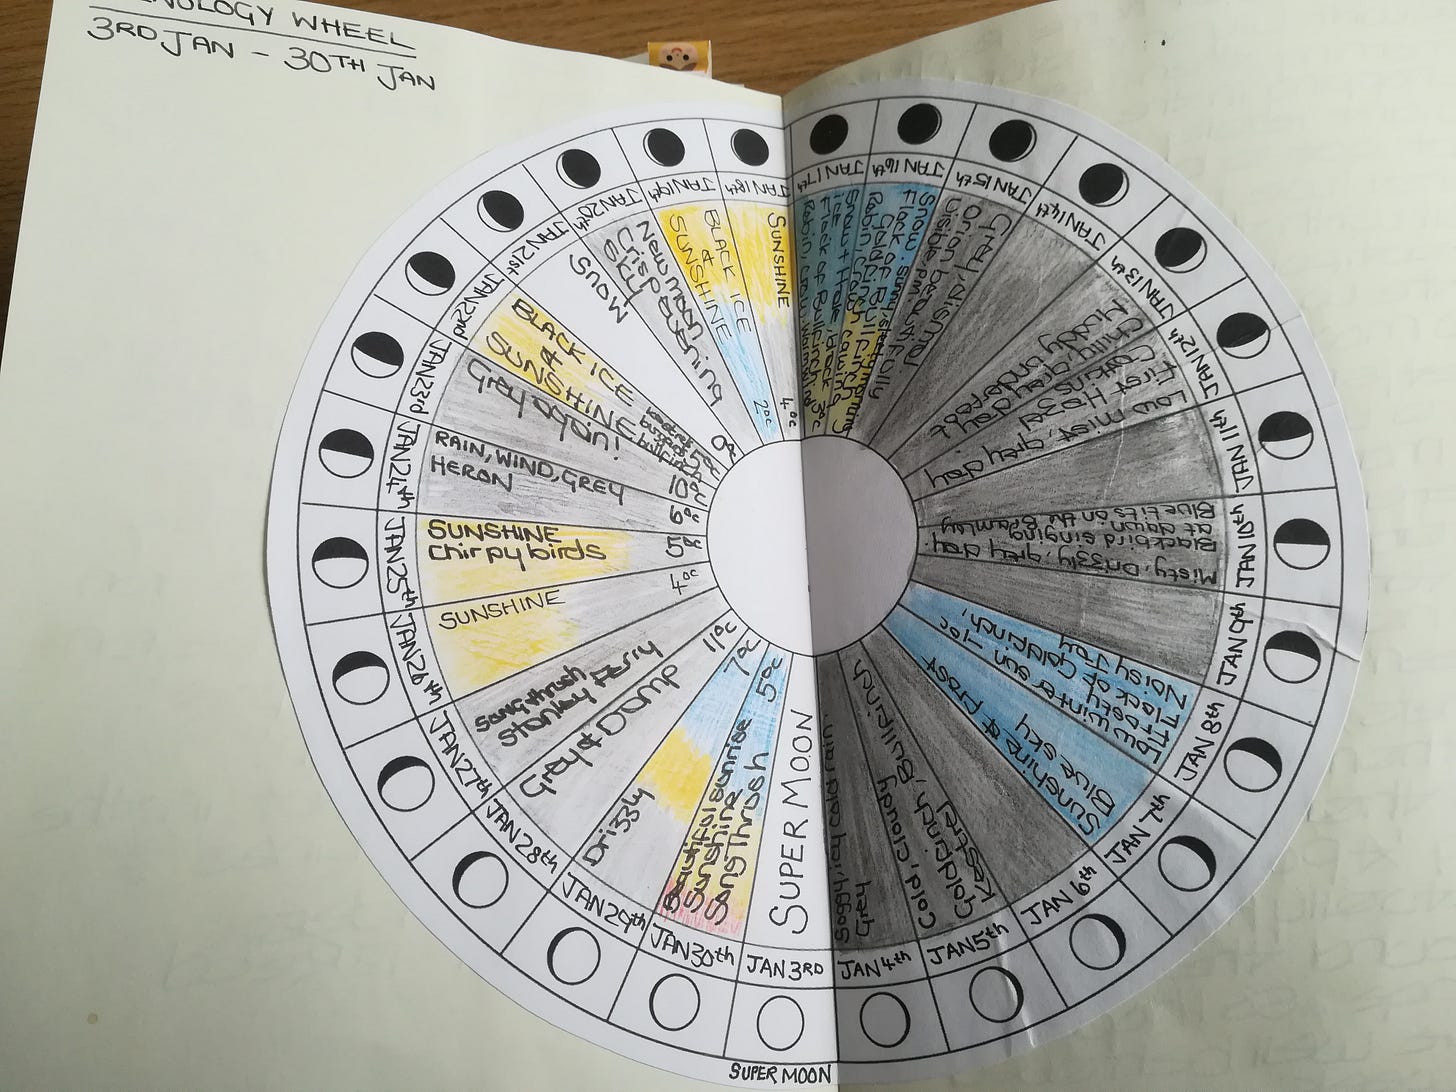 NOLOGY WHEEL
3RD JAN – 30TH JAN
JAN 3RD
SUPER MOON
SUPER MOON
JAN 4th
Soggy, icy cold rain.
Grey
JAN 5th
Cold, cloudy
Goldfinch, Bullfinch
Kestrel
JAN 6th
JAN 7th
Sunshine & frost
Blue sky
JAN 8th
Low winter sun 7°c
Flock of Goldfinch,
Noisy Jay
JAN 9th
JAN 10th
Misty, Drizzly, grey day.
Blackbird singing
at dawn
Bluetits on the Bramley
JAN 11th
JAN 12th
Low mist, grey day
First Hazel
Catkins
JAN 13th
Chilly, grey day
Muddy underfoot
JAN 14th
JAN 15th
Grey, dismal
Orion beautifully
visible pm
JAN 16th
Snow
Flock of Bullfinch
Goldfinch
Robin
JAN 17th
Snow & Hail
Flock of Bullfinch
Robin
3°c
JAN 18th
SUNSHINE
4°c
JAN 19th
BLACK ICE
&
SUNSHINE
2°c
JAN 20th
New moon
Crisp evening
sky
JAN 21st
Snow
0°c
JAN 22nd
BLACK ICE
&
SUNSHINE
5°c
JAN 23rd
Grey again!
10°c
JAN 24th
RAIN, WIND, GREY
HERON
6°c
JAN 25th
SUNSHINE
Chirpy birds
5°c
JAN 26th
SUNSHINE
4°c
JAN 27th
Song thrush
Stanley Ferry
JAN 28th
Grey & Damp
11°c
JAN 29th
Drizzly
7°c
JAN 30th
Beautiful sunrise
Sunshine
Song Thrush
5°c